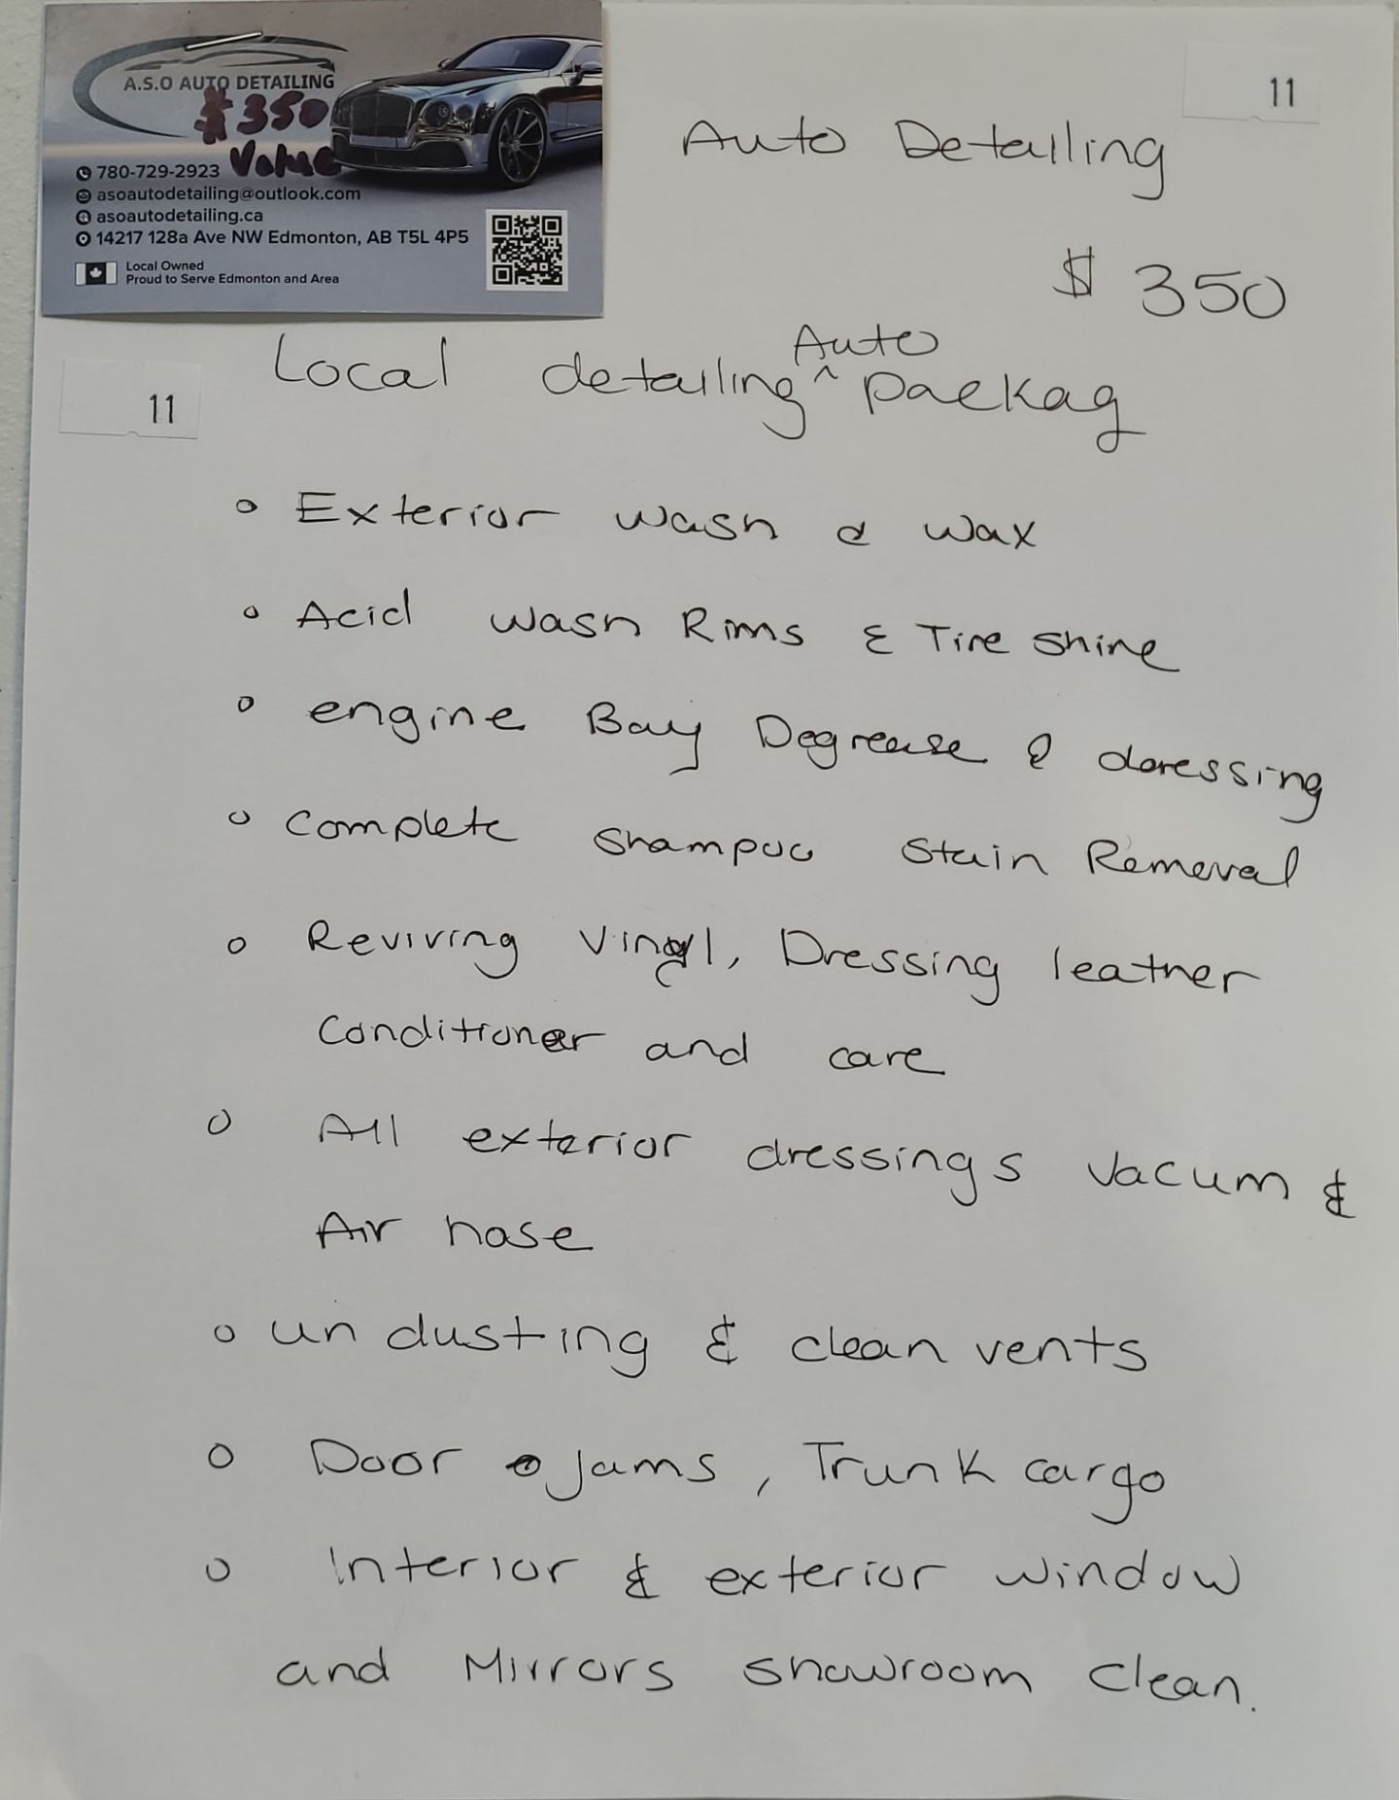 A.S.O AUTO DETAILING
$350
Value
780-729-2923
asoautodetailing@outlook.com
asoautodetailing.ca
14217 128a Ave NW Edmonton, AB T5L 4P5
Local Owned
Proud to Serve Edmonton and Area
11
Auto Detailing
$ 350
11
Local detailing ^ Auto packag
° Exterior wash & wax
° Acid Wash Rims & Tire shine
° engine Bay Degrease & doressing
° complete shampoo stain Removal
° Reviving Vinyl, Dressing leather
Conditioner and care
° All exterior dressings Vacum &
Air hose
° un dusting & clean vents
° Door Jams, Trunk cargo
° Interior & exterior window
and Mirrors showroom clean.